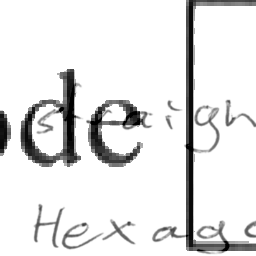 ode
straigh
Hexago